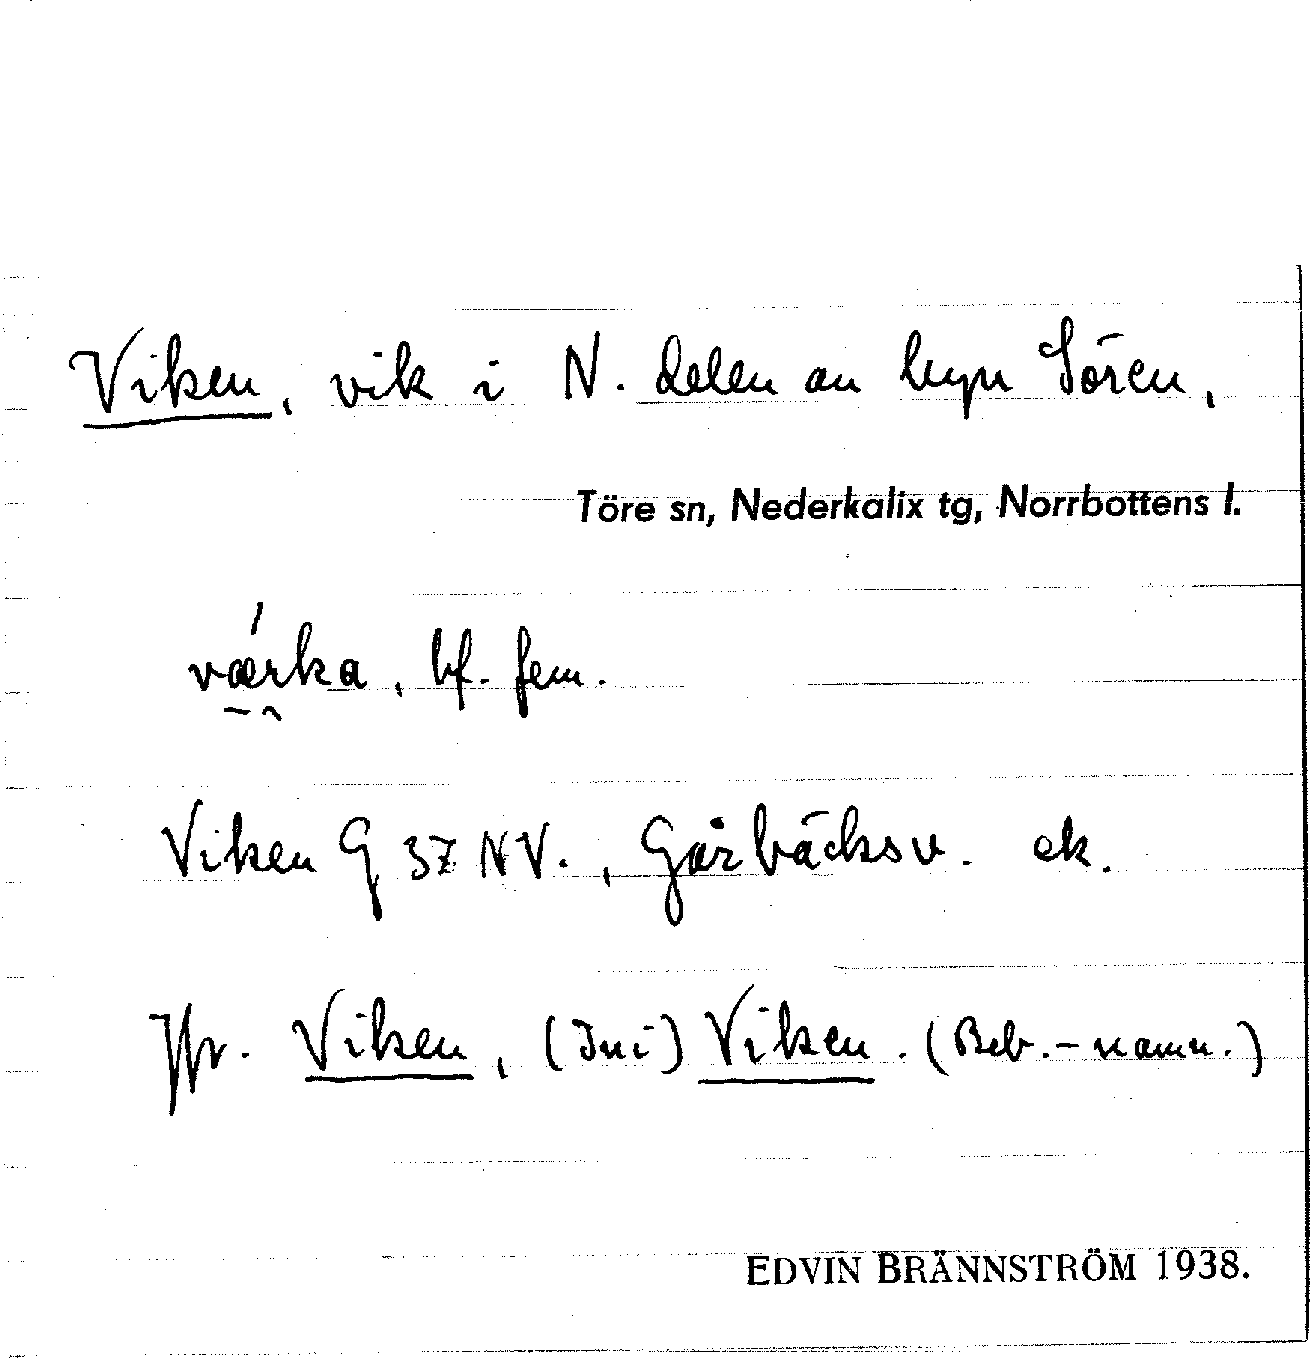 Viken, vik i N. delen av byn Sören,
Töre sn, Nederkalix tg, Norrbottens l.
værka, bf. fem.
Viken G 37 NV., Gårbäcksv. ek.
Jfr. Viken, (Ini) Viken. (Beb.-namn.)
EDVIN BRÄNNSTRÖM 1938.